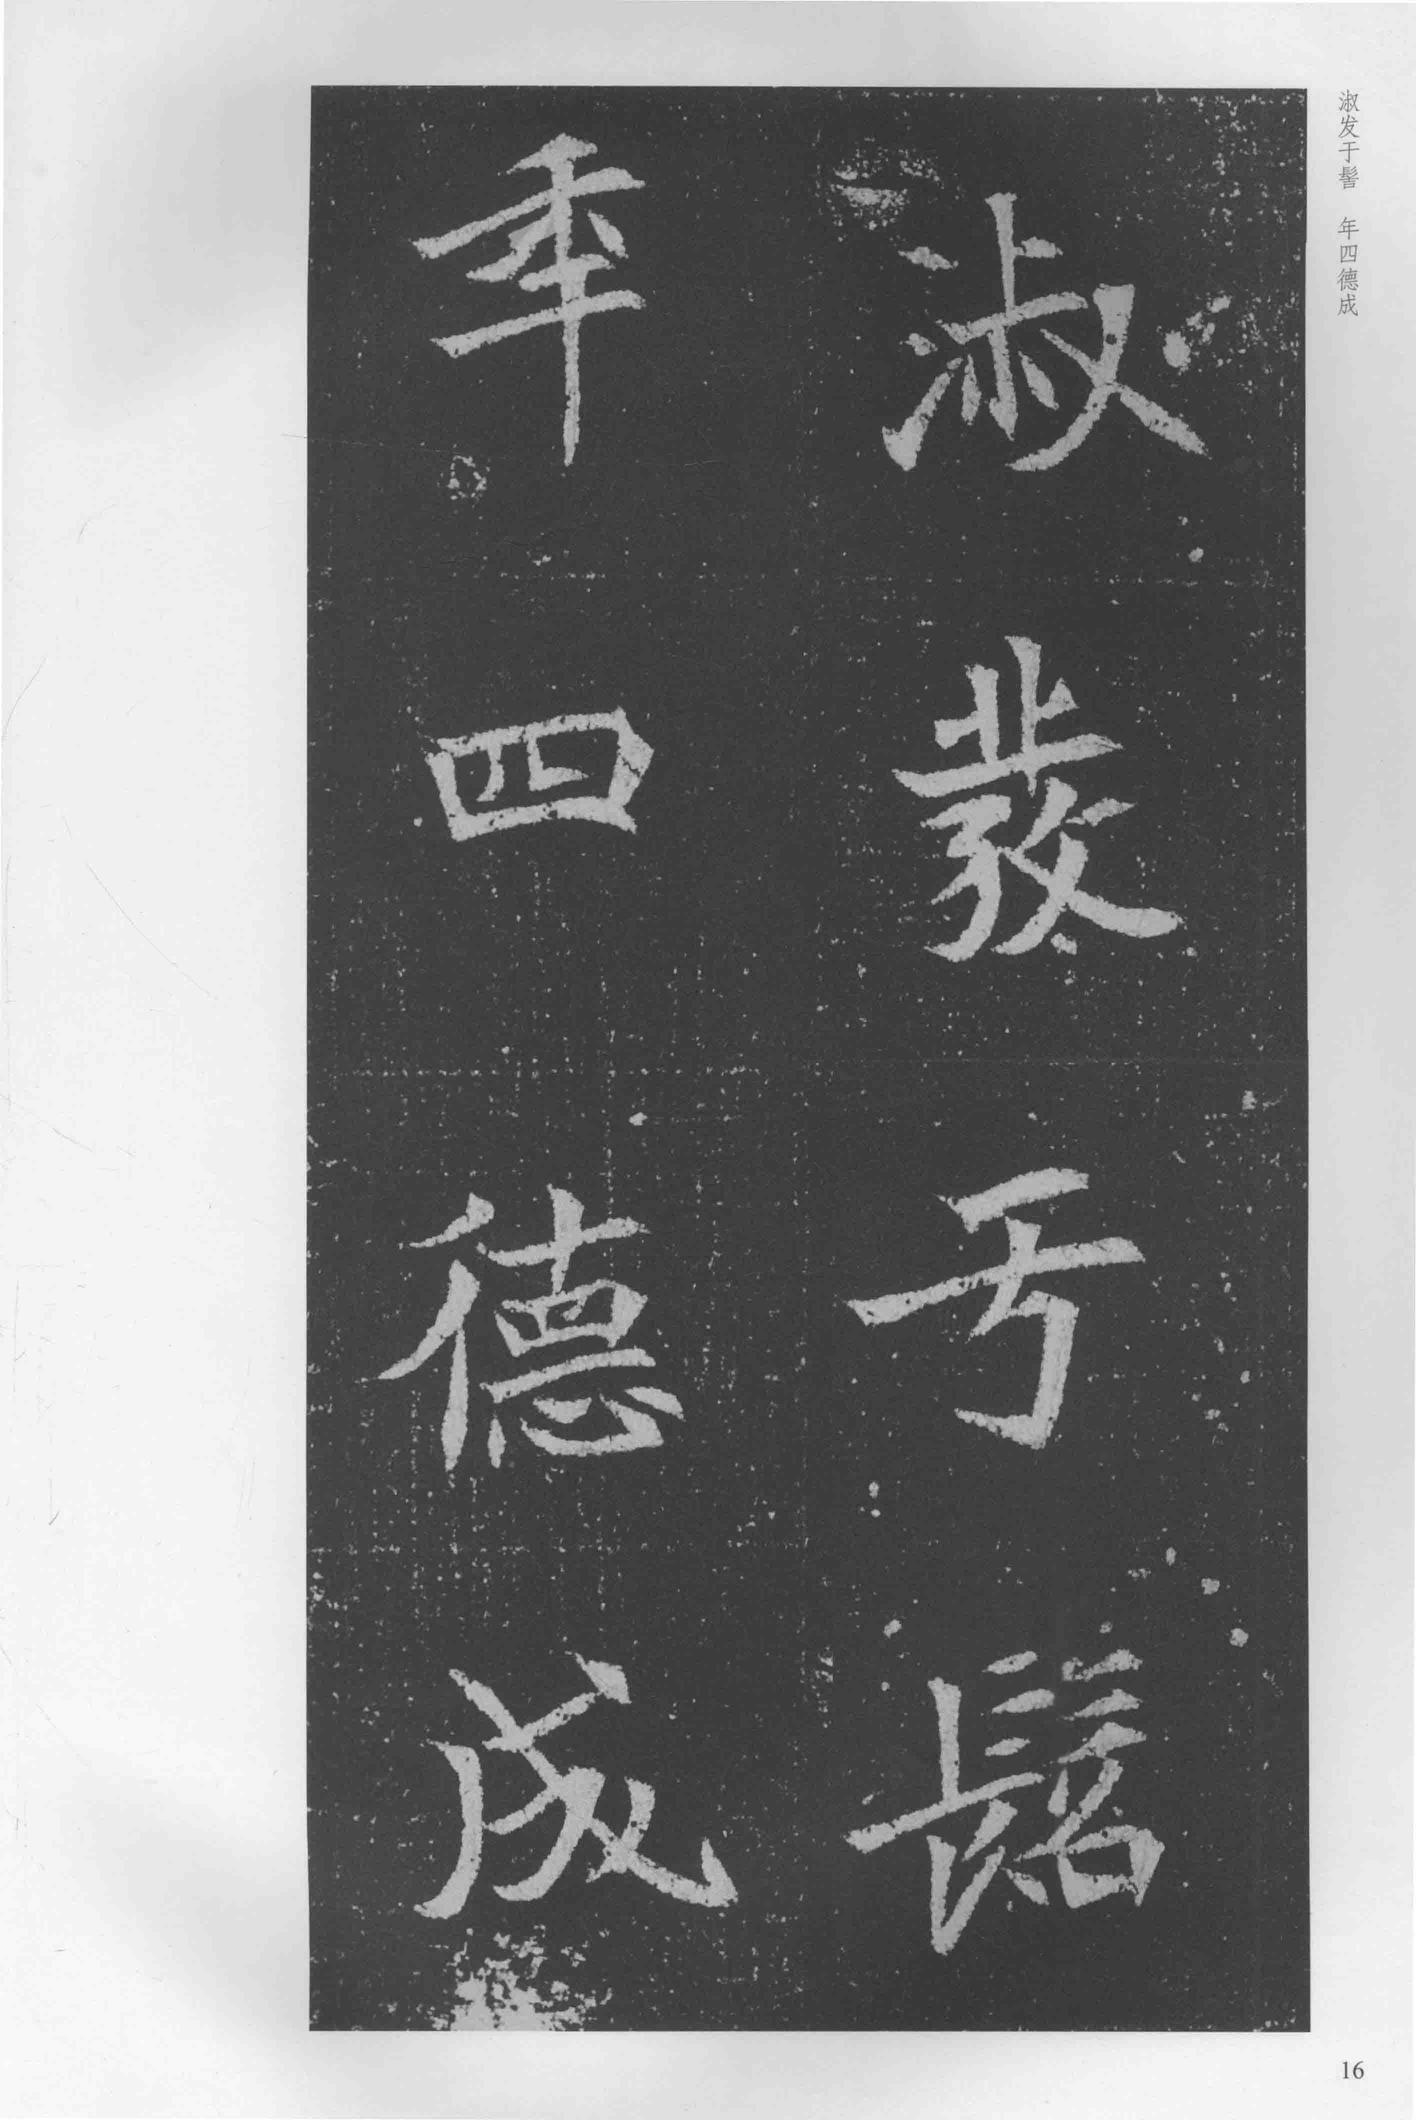 淑发于髫　年四德成
淑發于髫
年四德成
16